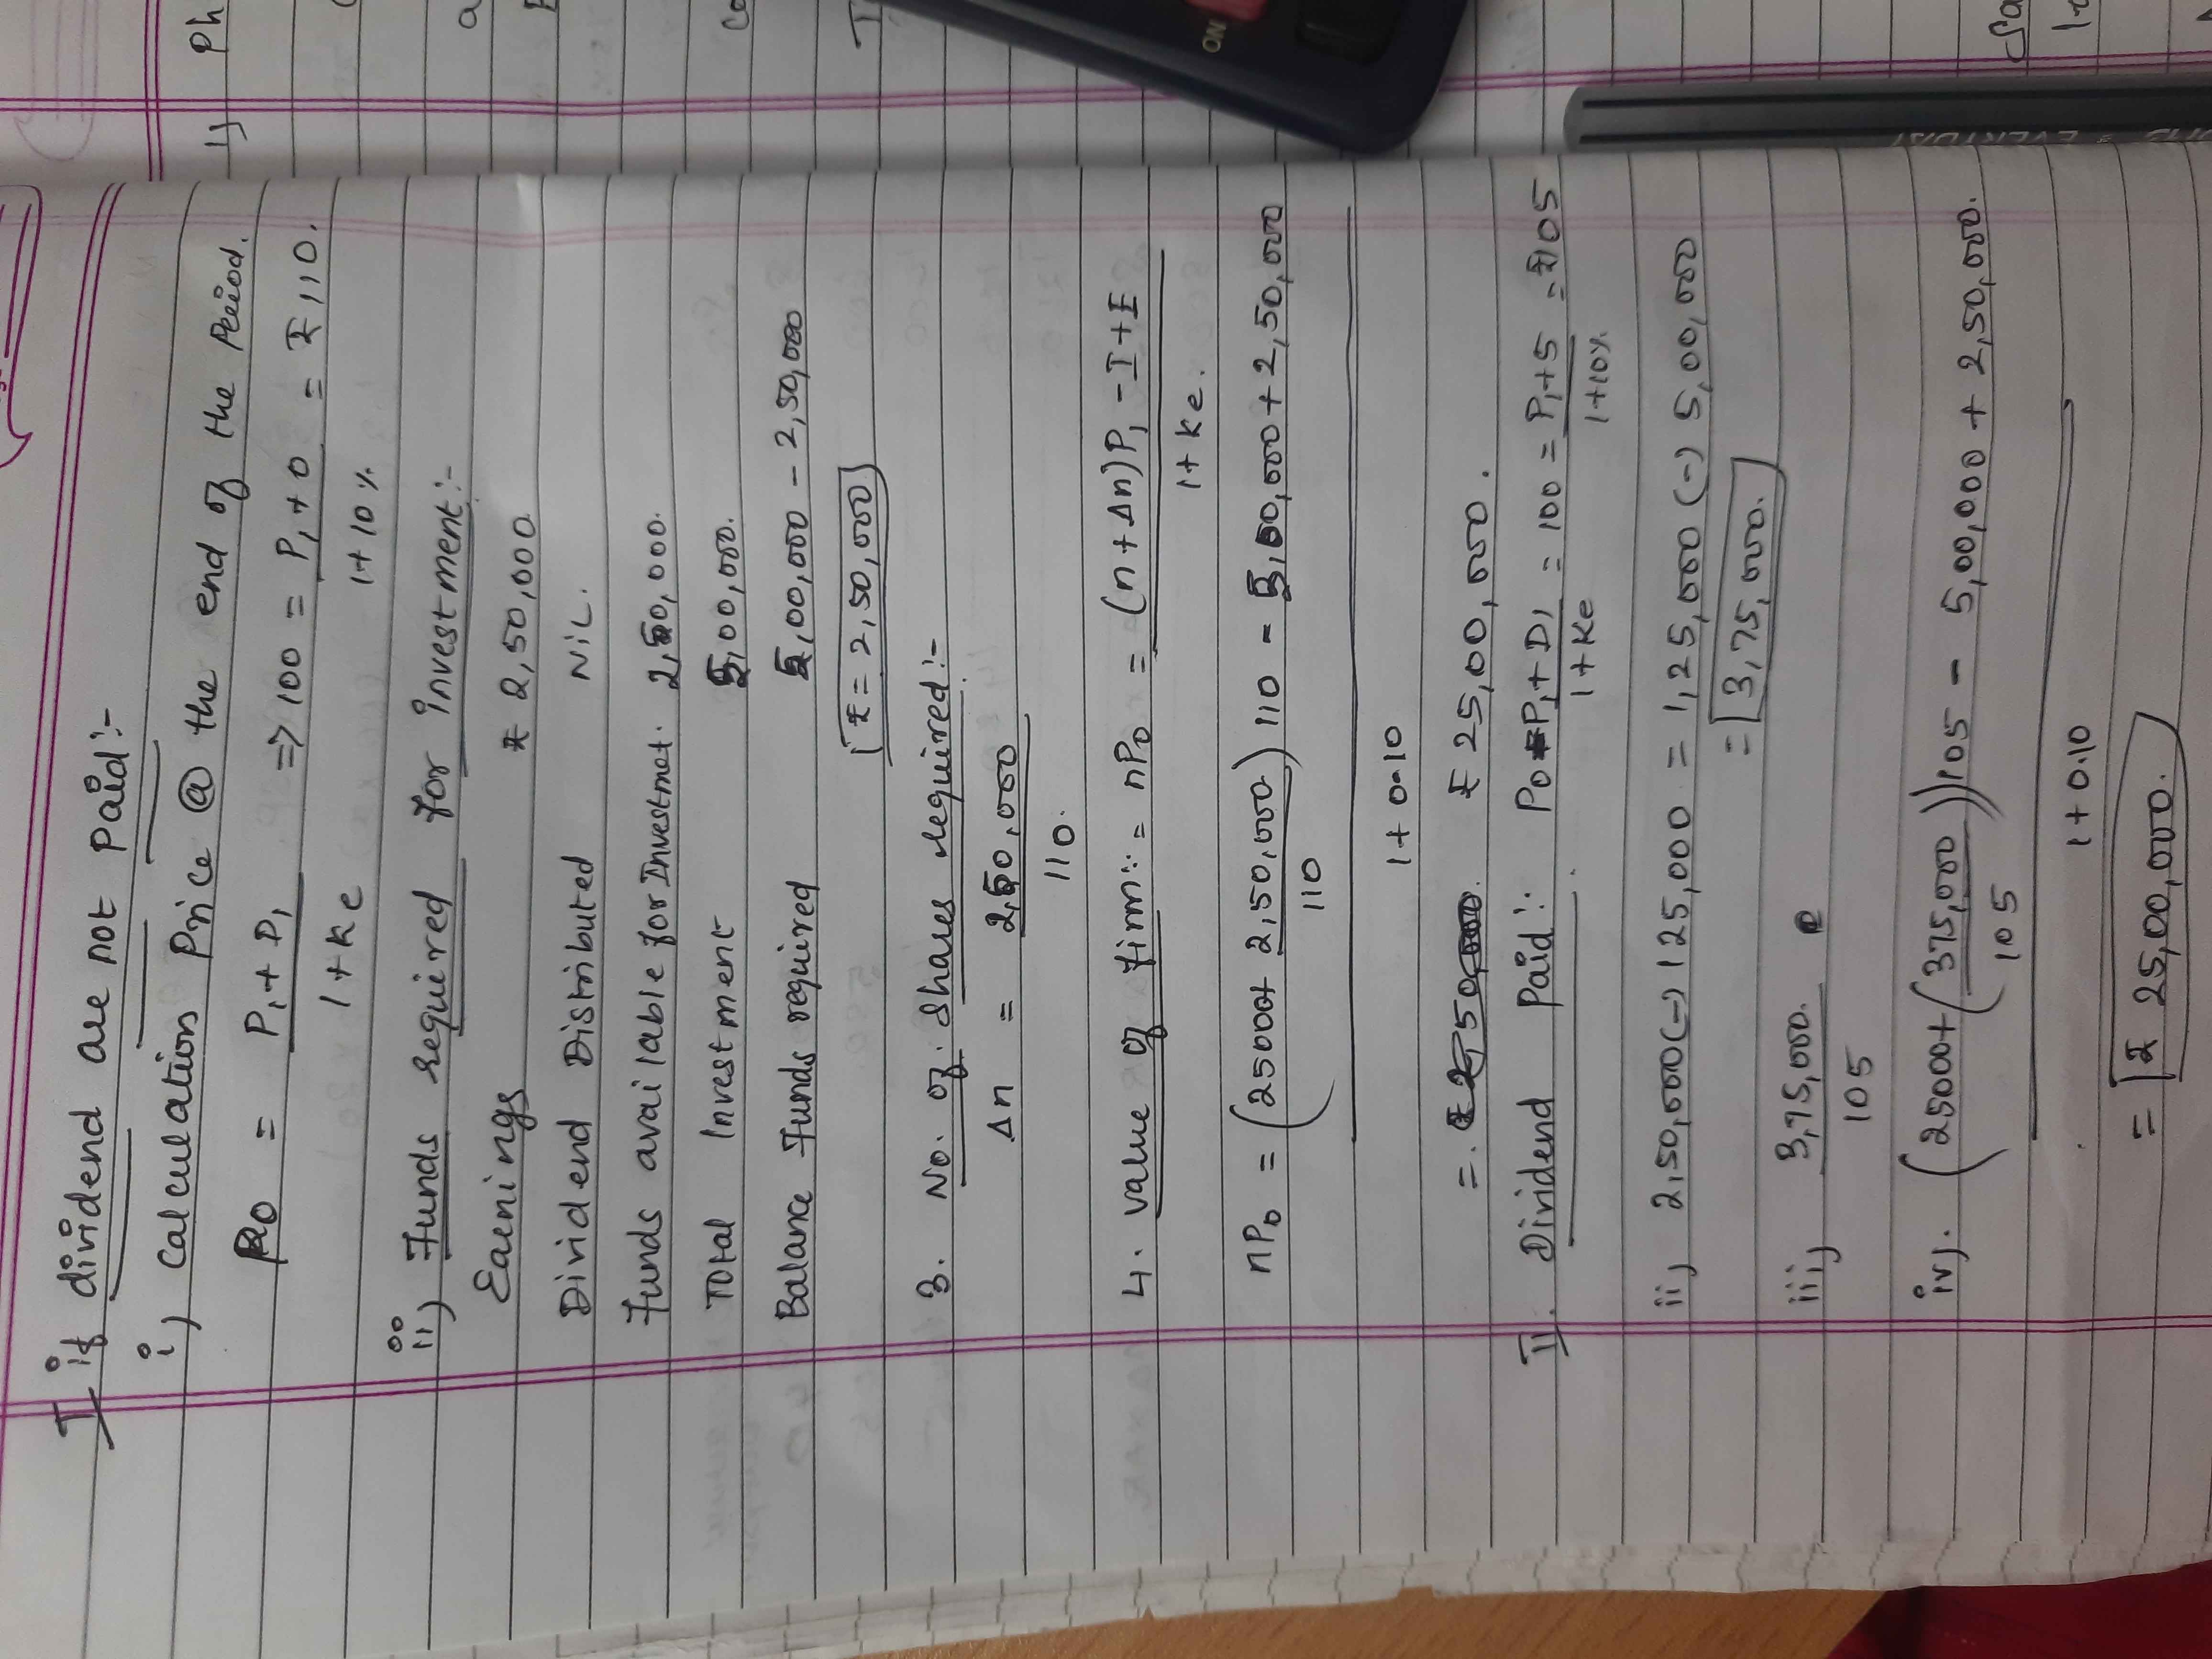 I if dividend are not Paid:-
i) Calculation Price @ the end of the Period.
P0 = P1 + D1 / 1+ke => 100 = P1 + 0 / 1+10% = ₹ 110.
ii) Funds required for investment:-
Earnings ₹ 2,50,000
Dividend Distributed NIL.
Funds available for Investmet. 2,50,000.
Total Investment 5,00,000.
Balance Funds required 5,00,000 - 2,50,000
₹ = 2,50,000
3. No. of. Shares required:-
Δn = 2,50,000 / 110.
4. Value of firm:- = nP0 = (n + Δn)P1 - I + E / 1+ke.
nP0 = (25000+ 2,50,000 / 110) 110 - 5,00,000 + 2,50,000
1+0.10
= ₹ 25,00,000.
II. Dividend Paid:- P0 = P1 + D1 / 1+Ke = 100 = P1+5 / 1+10% = ₹105
ii) 2,50,000 (-) 125,000 = 1,25,000 (-) 5,00,000
= 3,75,000.
iii) 3,75,000. / 105
iv). (25000+ (375,000 / 105)) 105 - 5,00,000 + 2,50,000.
1+0.10
= ₹ 25,00,000.
1) Ph
ON
EVERYDAY